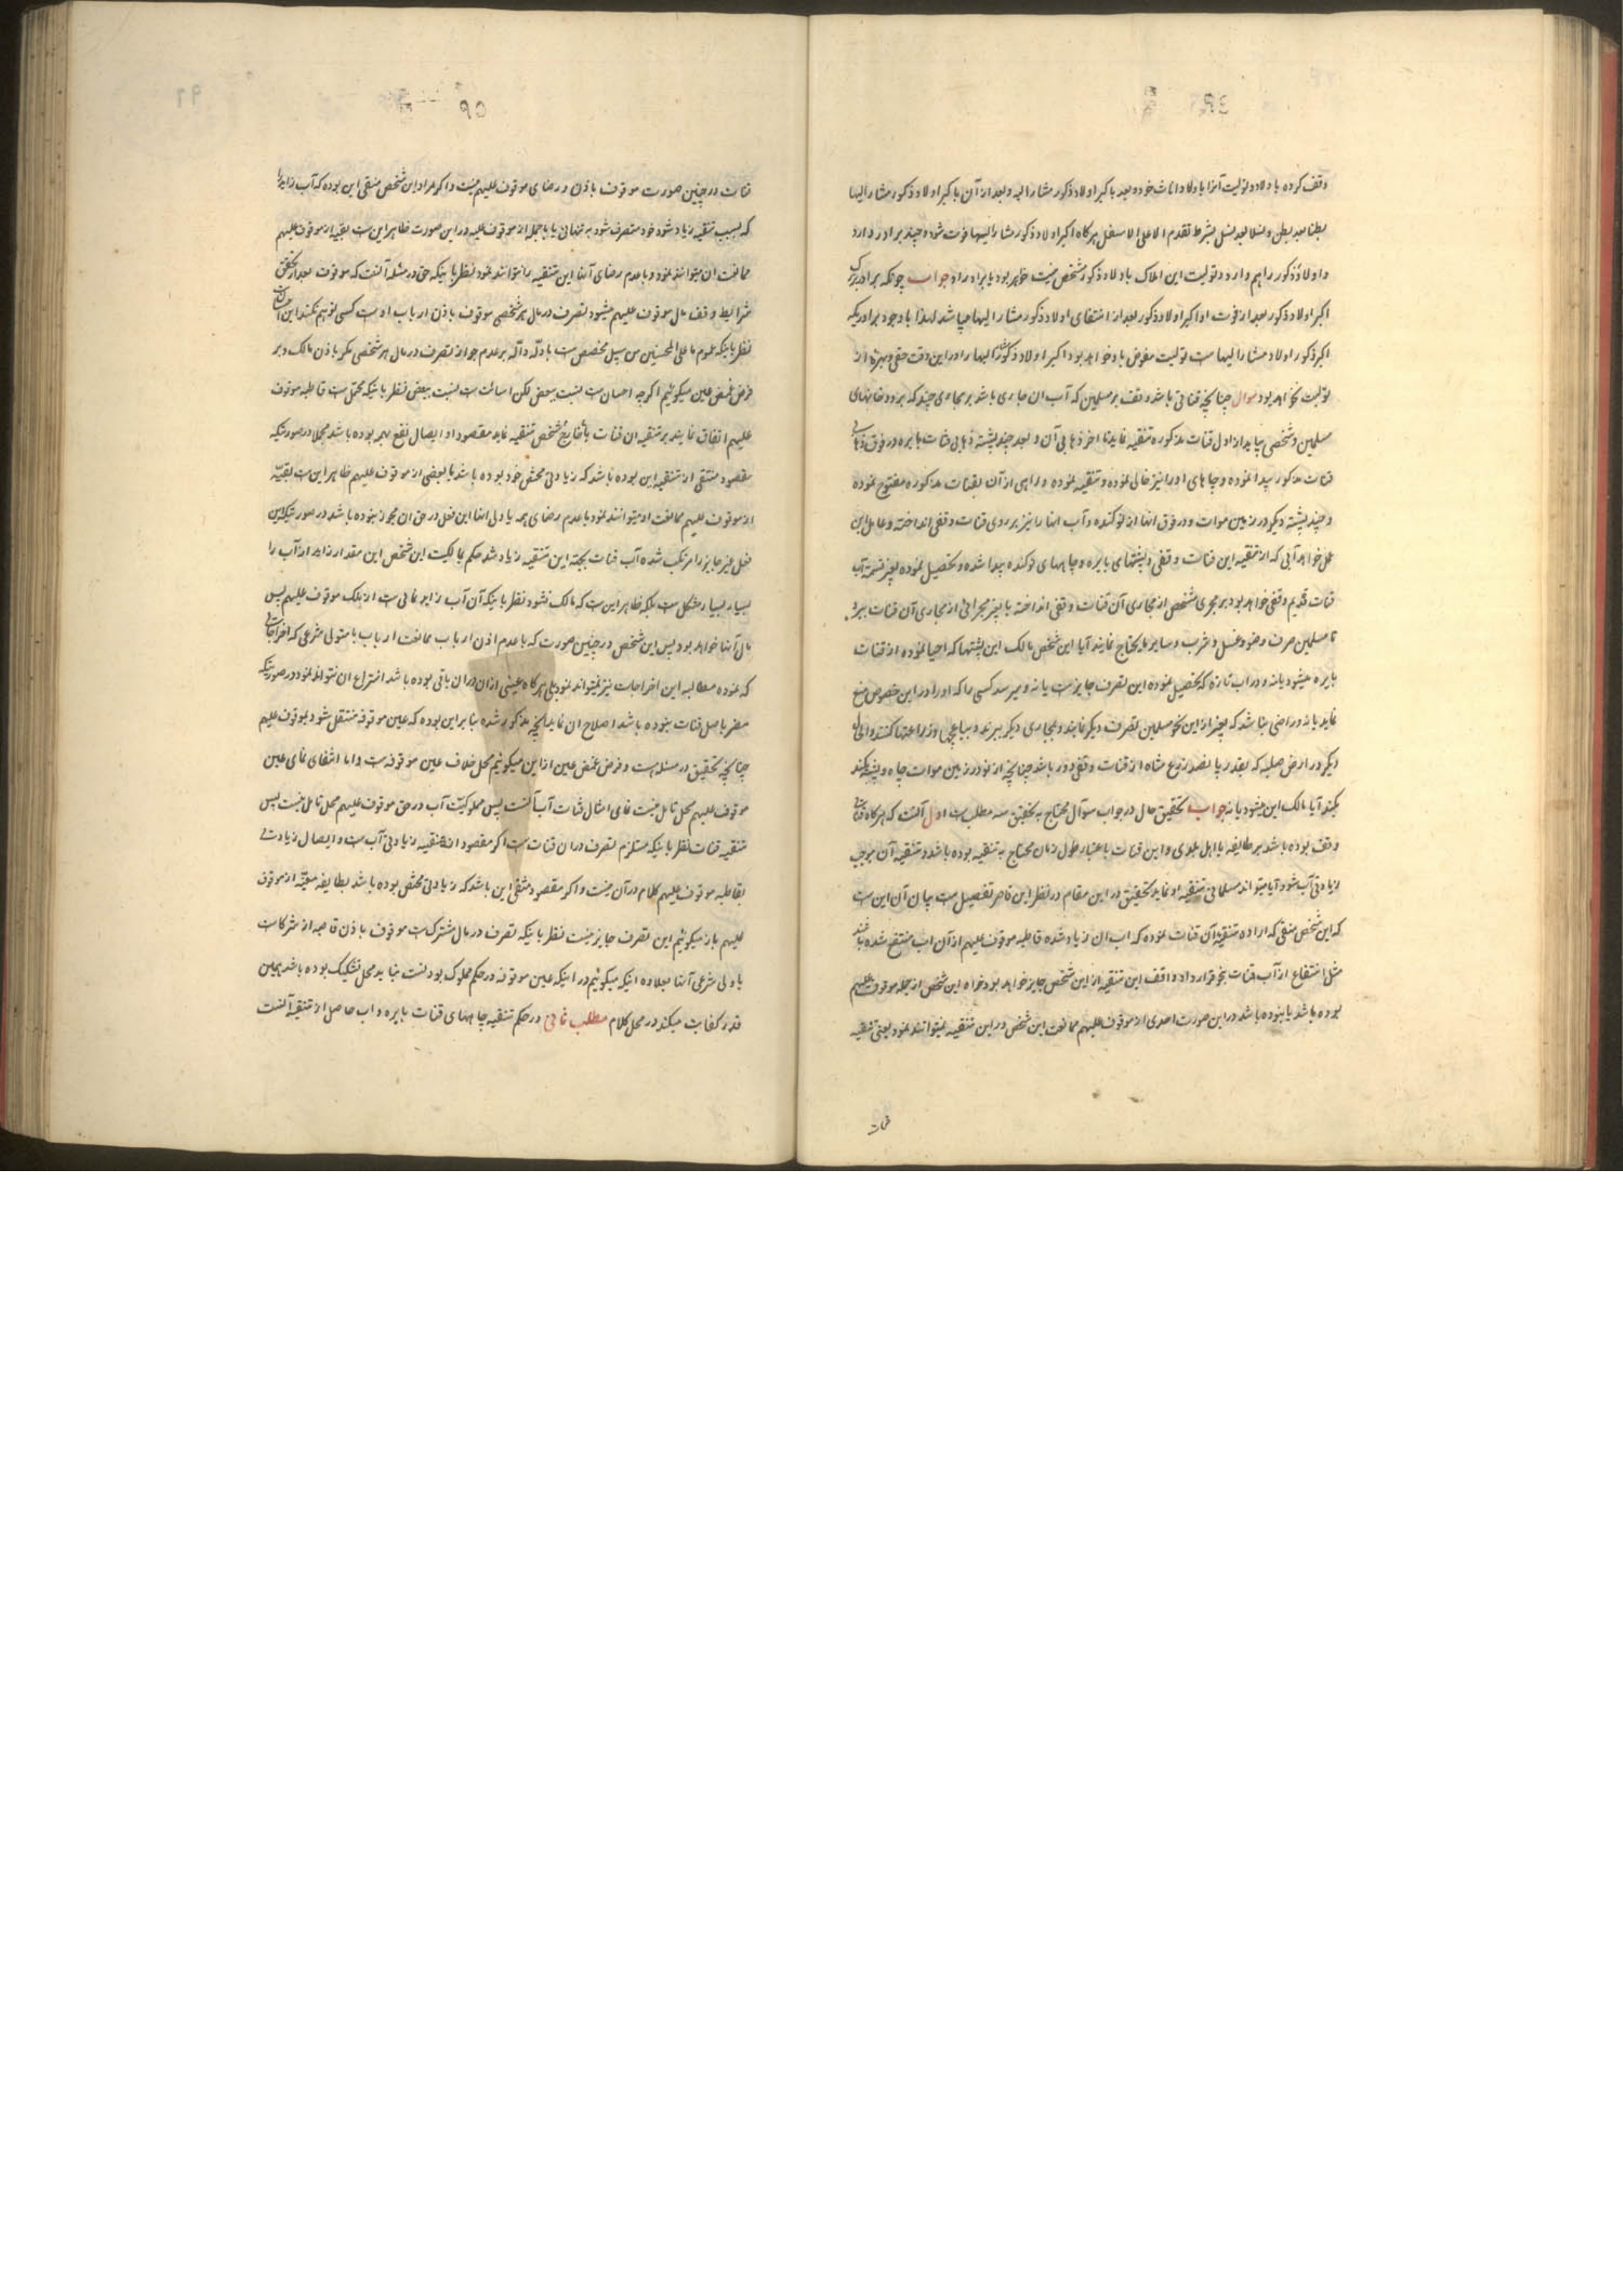 وقف کرده باولاد و تولیت آنرا باولاد اناث خود و بعد باکبر اولاد ذکور مشار الیه و بعد از آن باکبر اولاد ذکور مشار الیها
بطنا بعد بطن و نسلا بعد نسل بشرط تقدم الاعلی الاسفل هرگاه اکبر اولاد ذکور مشار الیها فوت شود و چند برادر دارد
و اولاد ذکور را هم دارد و تولیت این املاک باولاد ذکور شخص میت خواهد بود یا برادر او جواب چونکه برادر بزرگ
اکبر اولاد ذکور بعد از فوت او اکبر اولاد ذکور بعد از انتفای اولاد ذکور مشار الیها میباشد لهذا با وجود برادریکه
اکبر ذکور اولاد مشار الیها ست تولیت مفوض باو خواهد بود اکبر اولاد ذکور مشار الیها را در این وقت حقی و بهرۀ از
تولیت نخواهد بود سوال چنانچه قناتی باشد وقف بر مسلمین که آب ان جاری باشد بر مجاری چند که برود خانهای
مسلمین و شخصی بیاید از اول قنات مذکوره تنقیه نماید تا اخر ذهابی آن و بعد چند پشته ذهابی قنات بایره در فوق ذهابی
قنات مذکور پیدا نموده و چاهای اورا نیز خالی نموده و تنقیه نموده و راهی از آن بقنات مذکوره مفتوح نموده
و چند پشته دیگر در زمین موات و در فوق انها از نو کنده و آب انها را نیز بر روی قنات وقفی انداخته و عامل این
عمل خواهد آبی که از تنقیه این قنات وقفی و پشتهای بایره و چاههای نو کنده پیدا شده و تحصیل نموده بغیر قسمة آب
قنات قدیم وقفی خواهد بود بر مجری مشخص از مجاری آن قنات وقفی انداخته یا بغیر مجرائی از مجاری آن قنات ببرد
تا مسلمین صرف وضو و غسل و شرب و سایر ما یحتاج نمایند آیا این شخص مالک این پشتها که احیا نموده از قنات
بایره میشود یا نه و در اب تازه که تحصیل نموده این تصرف جایز ست یا نه و میرسد کسی را که اورا در این خصوص منع
نماید یا نه و راضی نباشد که بغیر از این نحو مسلمین تصرف دیگر نمایند و بمجاری دیگر ببرند و بباغچها و زراعتها کنند و الحال
دیگر در ارض صلبه که بقدر پانصد زرع مشاه از قنات وقفی دور باشد چنانچه از نو در زمین موات چاه و پشته بکند
بکند آیا مالک این میشود یا نه جواب تحقیق حال در جواب سوآل محتاج به تحقیق سه مطلب ست اول آنست که هرگاه قناتی
وقف بوده باشد بر طایفه یا اهل بلدی و این قنات باعتبار طول زمان محتاج به تنقیه بوده باشد و تنقیه آن موجب
زیادتی آب شود آیا میتواند مسلمانی تنقیه او نماید تحقیق در این مقام در نظر این قاصر تفصیل ست بیان آن این ست
که این شخص منقی که اراده تنقیه آن قنات نموده که اب ان زیاد شده قاطبه موقوف علیهم از آن اب منتفع شده باشند
مثل انتفاع از آب قنات بنحو قرار داد واقف این تنقیه از این شخص جایز خواهد بود خواه این شخص از جمله موقوف علیهم
بوده باشد یا نبوده باشد در این صورت احدی از موقوف علیهم ممانعت این شخص در این تنقیه نمیتوانند نمود یعنی تنقیه
قنات
قنات در چنین صورت موقوف باذن و رضای موقوف علیهم نیست و اگر مراد این شخص منقی این بوده که آب زاید را
که بسبب تنقیه زیاد شود خود متصرف شود به تنهائی یا با جمله از موقوف علیه در این صورت ظاهر این ست بقیه از موقوف علیهم
ممانعت ان میتوانند نمود و با عدم رضای آنها این تنقیه را نتوانند نمود نظر باینکه حق در مسئله آنست که موقوف بعد از تحقق
شرایط وقف مال موقوف علیهم میشود تصرف در مال هر شخصی موقوف باذن ارباب اوست کسی توهم نکند این احسان است
نظر باینکه عموم ما علی المحسنین من سبیل مخصص ست بادلّه دآلّه بر عدم جواز تصرف در مال هر شخصی مگر باذن مالک و بر
فرض غمض عین میگوئیم اگر چه احسان ست نسبت ببعض لکن اسائت ست نسبت ببعض نظر باینکه محتمل ست قاطبه موقوف
علیهم اتفاق نمایند بر تنقیه ان قنات یا خارج شخص تنقیه نماید مقصود او ایصال نفع بهمه بوده باشد مجملا در صورتیکه
مقصود منتقی از تنقیه این بوده باشد که زیادتی مختص خود بوده باشد یا بعضی از موقوف علیهم ظاهر این ست بقیّه
از موقوف علیهم ممانعت او میتوانند نمود با عدم رضای همه یا ولی انها این فعل در حق ان مجوز نبوده باشد در صورتیکه این
فعل غیر جایز را مرتکب شده آب قنات بجهة این تنقیه زیاد شد حکم بمالکیت این شخص این مقدار زاید از آب را
بسیار بسیار مشکل ست بلکه ظاهر این ست که مالک نشود نظر باینکه آن آب زاید نمائی ست از ملک موقوف علیهم پس
مال آنها خواهد بود پس این شخص در چنین صورت که با عدم اذن ارباب ممانعت ارباب یا متولی شرعی که اخراجاتی
که نموده مطالبه این اخراجات نیز نمیتواند نمود بلی هرگاه عینی از ان در ان باقی بوده باشد انتزاع ان نتواند نمود در صورتیکه
مضر باصل قنات نبوده باشد اصلاح ان نماید آنچه مذکور شده بنا بر این بوده که عین موقوفه منتقل شود بموقوف علیهم
چنانچه تحقیق در مسئله است و فرض غمض عین از این میگوئیم محل خلاف عین موقوفه ست و اما انتفای نمای عین
موقوف علیهم محل تامل نیست نمای امثال قنات آب آنست پس مملوکیّت آب در حق موقوف علیهم محل تامل نیست پس
تنقیه قنات نظر باینکه مستلزم تصرف در ان قنات ست اگر مقصود از تنقیه زیادتی آب ست و ایصال زیادت
بقاطبه موقوف علیهم کلام در آن نیست و اگر مقصود منقی این باشد که زیادتی مختص بوده باشد بطایفه معیّنه از موقوف
علیهم باز میگوئیم این تصرف جایز نیست نظر باینکه تصرف در مال مشترک ست موقوف باذن قاطبه از شرکاست
یا ولی شرعی آنها بعلاوه اینکه میگوئیم در اینکه عین موقوفه در حکم مملوک بودنست نباید محل تشکیک بوده باشد همین
قدر کفایت میکند در محل کلام مطلب ثانی در حکم تنقیه چاههای قنات بایره و اب حاصل از تنقیه آنست